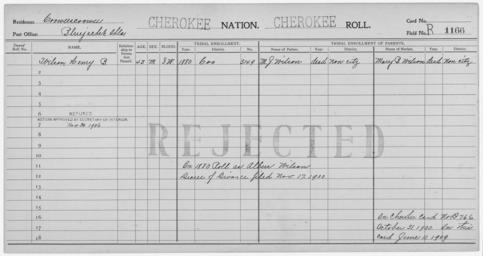 Residence:
CHEROKEE NATION. CHEROKEE ROLL.
Card No.
Post Office:
Field No. R 1166
Dawes' Roll No.
NAME.
Relationship to Person First Named.
AGE.
SEX.
BLOOD.
TRIBAL ENROLLMENT.
TRIBAL ENROLLMENT OF PARENTS.
Year.
District.
No.
Name of Father.
Year.
District.
Name of Mother.
Year.
District.
1 Wilson Henry B 42 M IW 1880 Coo 3149 M J Wilson dead non citz Mary B Wilson dead non citz
2
3
4
5
6 REFUSED
ACTION APPROVED BY SECRETARY OF INTERIOR
7
8 REJECTED
9
10
11 On 1880 Roll as Wilson
12 Decree of Divorce filed Nov 17 1900
13
14
15
16 On Cherokee Card No D 766
17 October 31 1900 On this
18 card June 10 1909